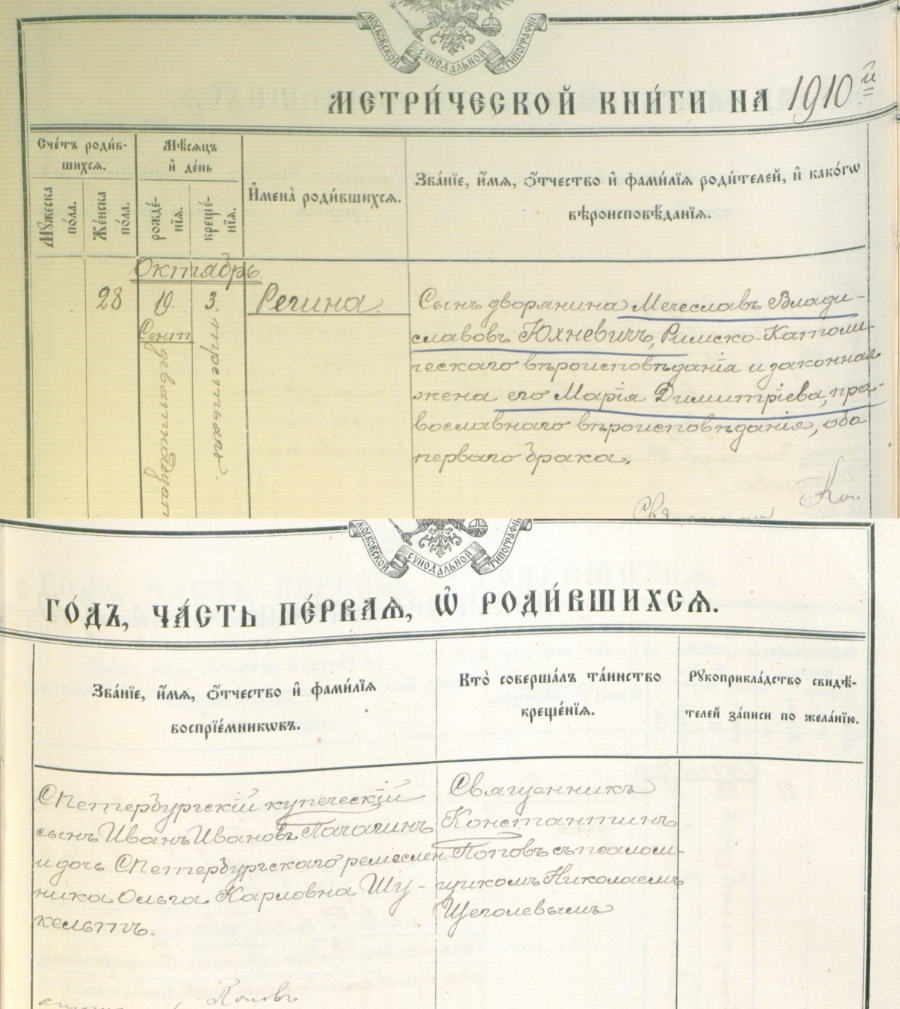 МОСКОВСКОЙ СѴНОДАЛЬНОЙ ТИПОГРАФІИ
МЕТРИ́ЧЕСКОЙ КНИ́ГИ НА 1910й
Сче́тъ роди́в-
шихсѧ.
Мѣ́сѧцъ
и҆ де́нь
И҆мена̀ роди́вшихсѧ.
Зва́нїе, и҆́мѧ, ѻ҆́тчество и҆ фами́лїѧ роди́телей, и҆ како́гѡ
вѣроисповѣ́данїѧ.
Мꙋ́жеска
по́ла.
Же́нска
по́ла.
рожде́-
нїѧ.
креще́-
нїѧ.
Октябрь
28
19.
Сент
девятнадцат
3.
третьяго
Регина
Сынъ дворянина Мечеславъ Влади-
славовъ Юхневичъ, Римско-Католи-
ческаго вѣроисповѣданія и законная
жена его Марія Димитріева, пра-
вославнаго вѣроисповѣданія, оба
перваго брака.
МОСКОВСКОЙ СѴНОДАЛЬНОЙ ТИПОГРАФІИ
ГО́ДЪ, ЧА́СТЬ ПЕ́РВАѦ, Ѽ РОДИ́ВШИХСѦ.
Зва́нїе, и҆́мѧ, ѻ҆́тчество и҆ фами́лїѧ
воспрїе́мникѡвъ.
Кто̀ соверша́лъ та́инство
креще́нїѧ.
Рꙋкоприкла́дство свидѣ́-
телей за́писи по жела́нїю.
СПетербургскій купеческій
сынъ Иванъ Ивановъ Пачагинъ
и дочь СПетербургскаго ремеслен
ника Ольга Карловна Шу-
кельтъ.
Священникъ
Константинъ
Поповъ съ псалом-
щикомъ Николаемъ
Щеголевымъ
Поповъ